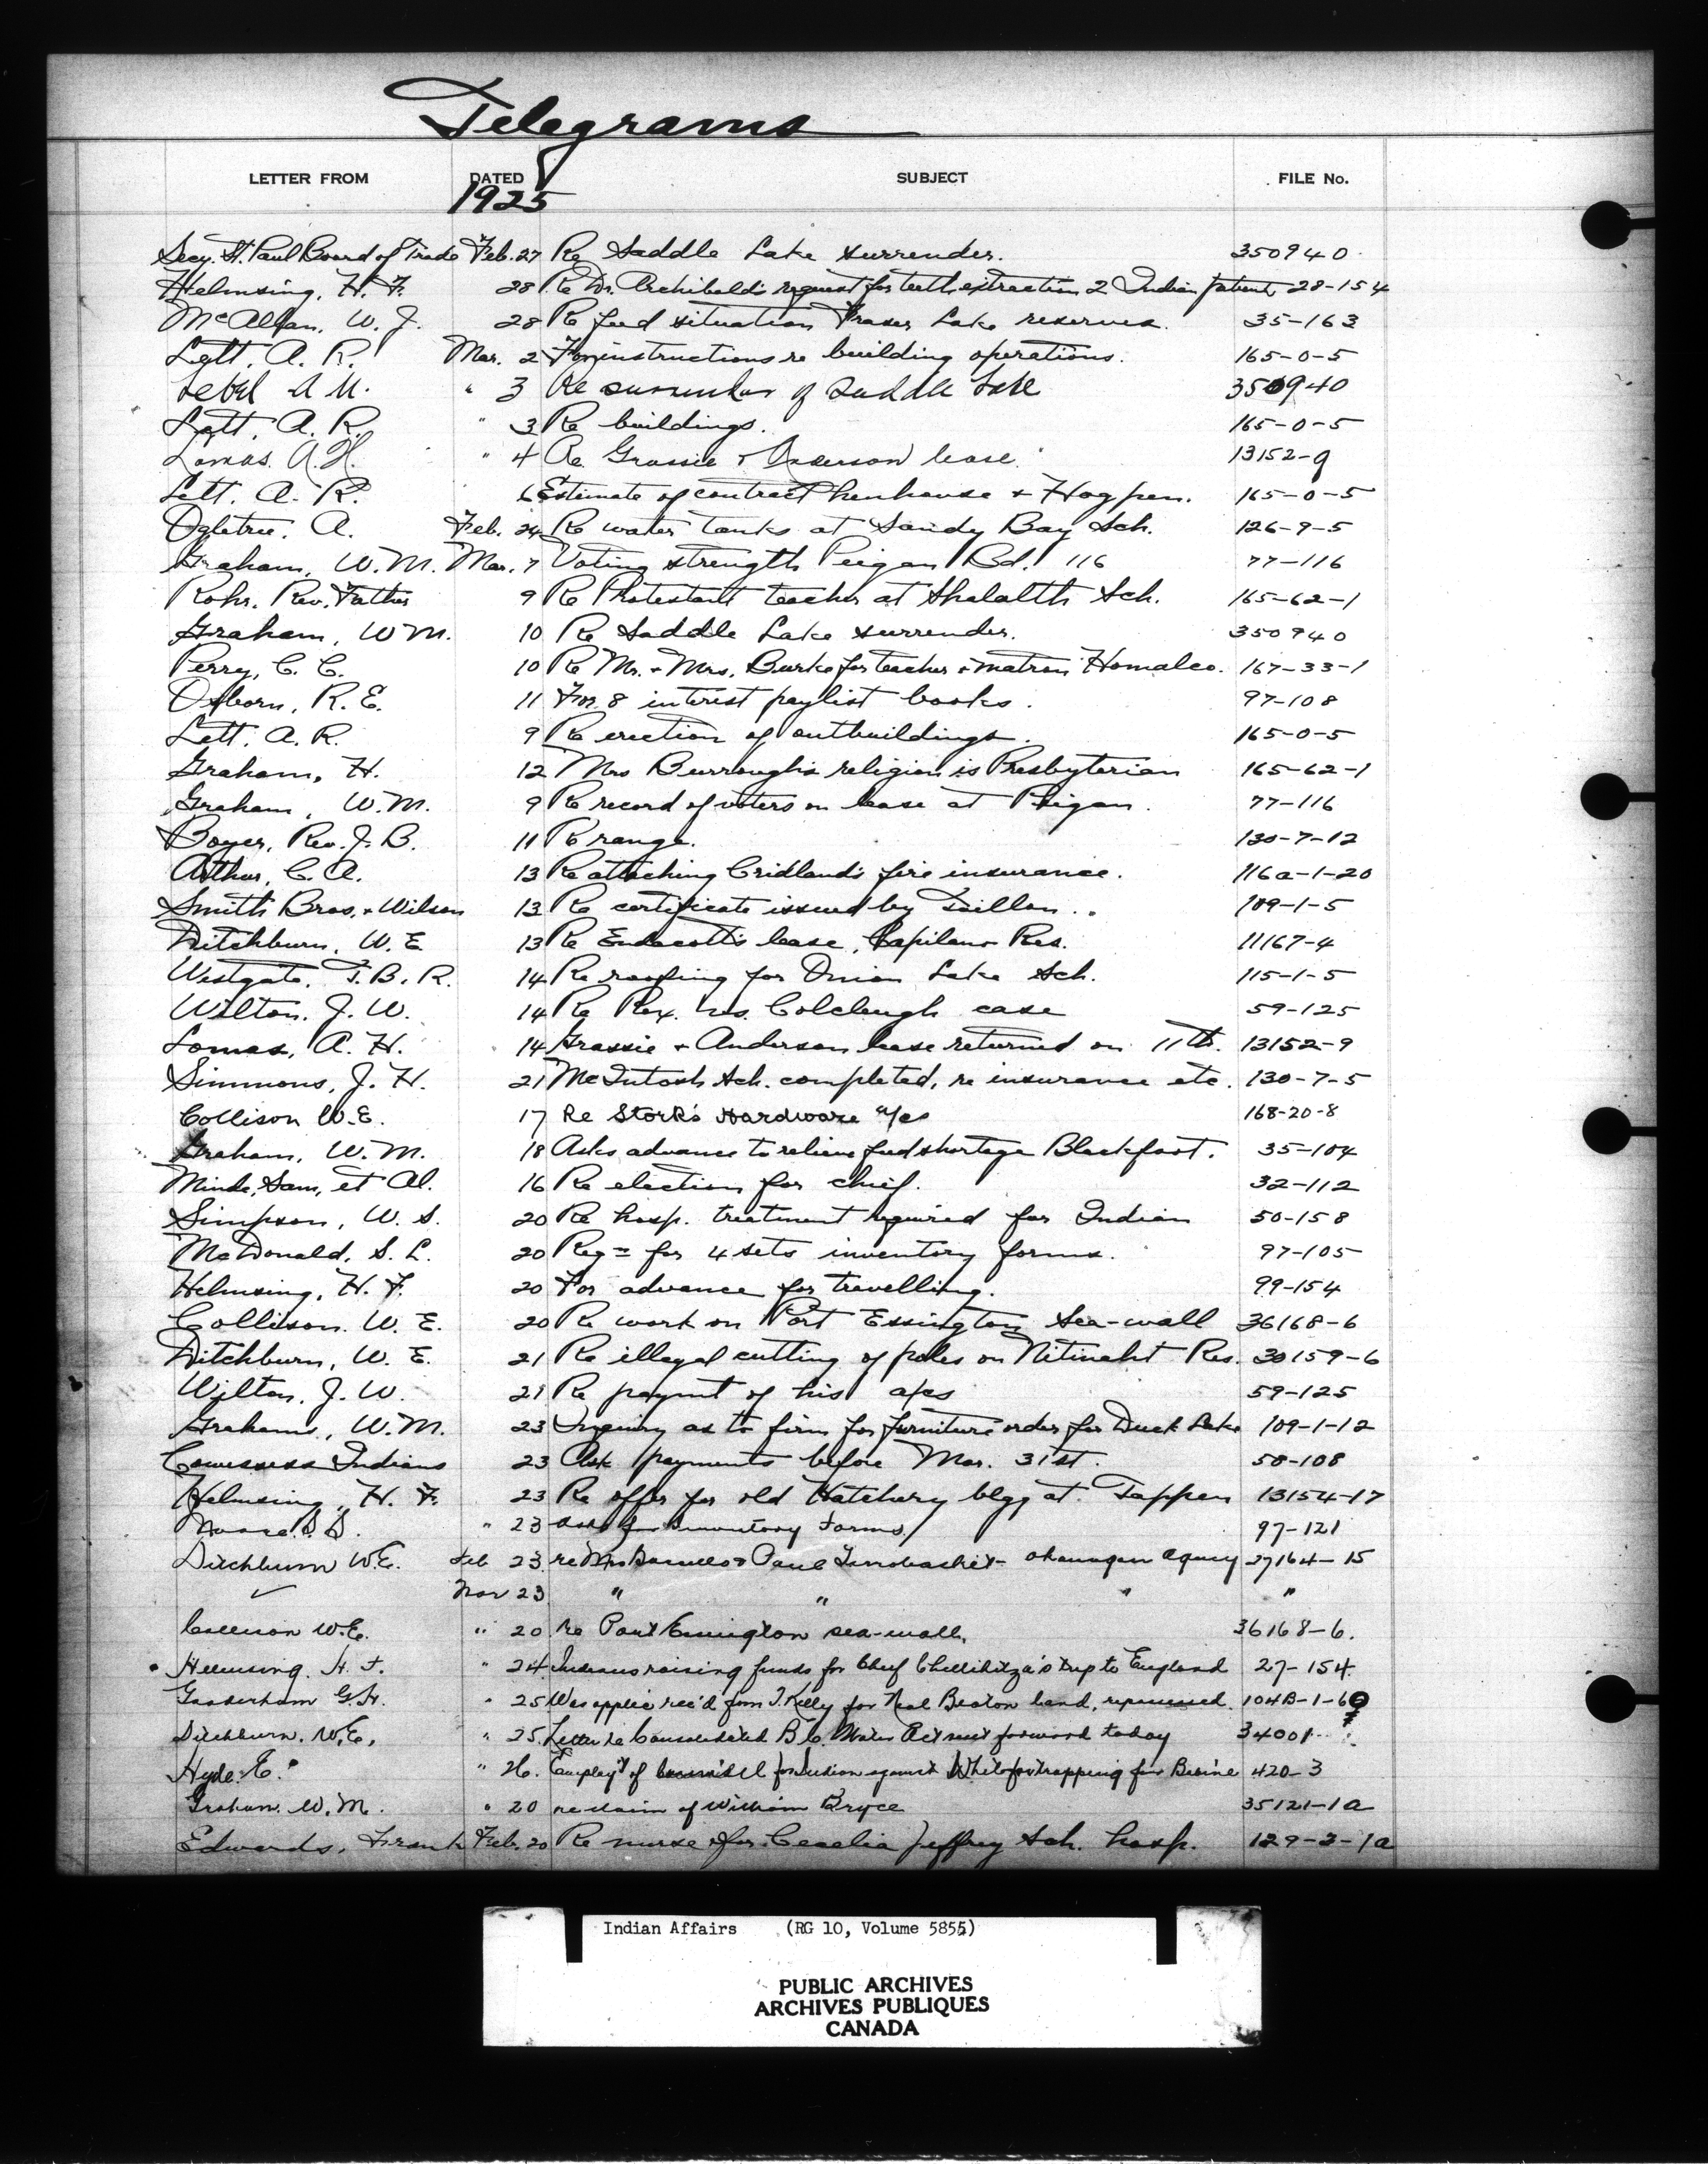 Telegrams
LETTER FROM DATED SUBJECT FILE No.
1925
Secy. St. Paul Board of Trade Feb. 27 Re Saddle Lake surrender. 350940
Helmsing, H. F. 28 Re Dr. Archibald's request for teeth extraction 2 Indian patients 28-154
McAllan, W. J. 28 Re feed situation Fraser Lake reserves. 35-163
Lett, A. R. Mar. 2 For instructions re building operations. 165-0-5
Lebel A U. " 3 Re surrender of Saddle Lake 350940
Lett, A. R. " 3 Re buildings. 165-0-5
Lomas. A. H. " 4 Re. Grassie & Anderson lease. 13152-9
Lett. A. R. 6 Estimate of contract henhouse & Hog pen. 165-0-5
Ogletree. A. Feb. 24 Re water tanks at Sandy Bay Sch. 126-9-5
Graham, W. M. Mar. 7 Voting strength Peigan Bd. 116 77-116
Rohr. Rev. Father 9 Re Protestant teacher at Shalalth Sch. 165-62-1
Graham, W M. 10 Re Saddle Lake surrender. 350940
Perry, C. C. 10 Re Mr. & Mrs. Burke for teacher & matron Homalco. 167-33-1
Osborn, R. E. 11 For 8 interest paylist books. 97-108
Lett. A. R. 9 Re erection of outbuildings. 165-0-5
Graham, H. 12 Mrs Burrough's religion is Presbyterian 165-62-1
Graham, W. M. 9 Re record of voters on lease at Peigan. 77-116
Boyer, Rev. J. B. 11 Re range. 130-7-12
Arthur, C. A. 13 Re attaching Cridland's fire insurance. 116a-1-20
Smith Bros. & Wilson 13 Re certificate issued by 109-1-5
Ditchburn, W. E 13 Re Endacott's lease, Capilano Res. 11167-4
Westgate, T. B. R. 14 Re roofing for Onion Lake Sch. 115-1-5
Wilton. J. W. 14 Re Rex. vs. Colcleugh case 59-125
Lomas, A. H. 14 Grassie & Anderson lease returned on 11th. 13152-9
Simmons, J. H. 21 McIntosh Sch. completed, re insurance etc. 130-7-5
Collison W. E. 17 Re Stork's Hardware a/cs 168-20-8
Graham, W. M. 18 Asks advance to relieve feed shortage Blackfoot. 35-104
Minde, Sam, et Al. 16 Re election for chief. 32-112
Simpson, W. S. 20 Re hosp. treatment required for Indian 50-158
McDonald, S. L. 20 Reqn for 4 sets inventory forms. 97-105
Helmsing, H. F. 20 For advance for travelling. 99-154
Collison. W. E. 20 Re work on Port Essington Sea-wall 36168-6
Ditchburn, W. E. 21 Re illegal cutting of poles on Nitinaht Res. 30159-6
Wilton, J. W. 21 Re paymnt of his a/cs 59-125
Graham, W. M. 23 Inquiry as to firm for furniture order for Duck Lake 109-1-12
Cowessess Indians 23 Ask payments before Mar. 31st. 58-108
Helmsing, H. F. 23 Re offer for old Hatchery bldg at Tappen 13154-17
S. " 23 asks for Inventory Forms. 97-121
Ditchburn W.E. Feb 23. re Mrs & Paul Okanagan Agency 27164-15
✓ Mar 23 " " " "
Collison W.E. " 20 re Port Essington sea-wall. 36168-6.
Helmsing. H. F. " 24. Indians raising funds for Chief Chillihitza's trip to England 27-154.
Gooderham G.H. " 25 Was applic rec'd from J. Kelly for Neal Beaton land, repossessed. 104B-1-69
Ditchburn. W.E. " 25. Letter re Consolidated B.C. Water Act sent forward today 34001
Hyde. E. " 26. Employ't of for Indian against White for trapping fur Babine 420-3
Graham. W. M. " 20 re claim of William Bryce 35121-1a
Edwards, Frank Feb. 20 Re nurse for Cecelia Jeffrey Sch. hosp. 129-3-1a
Indian Affairs (RG 10, Volume 5855)
PUBLIC ARCHIVES
ARCHIVES PUBLIQUES
CANADA